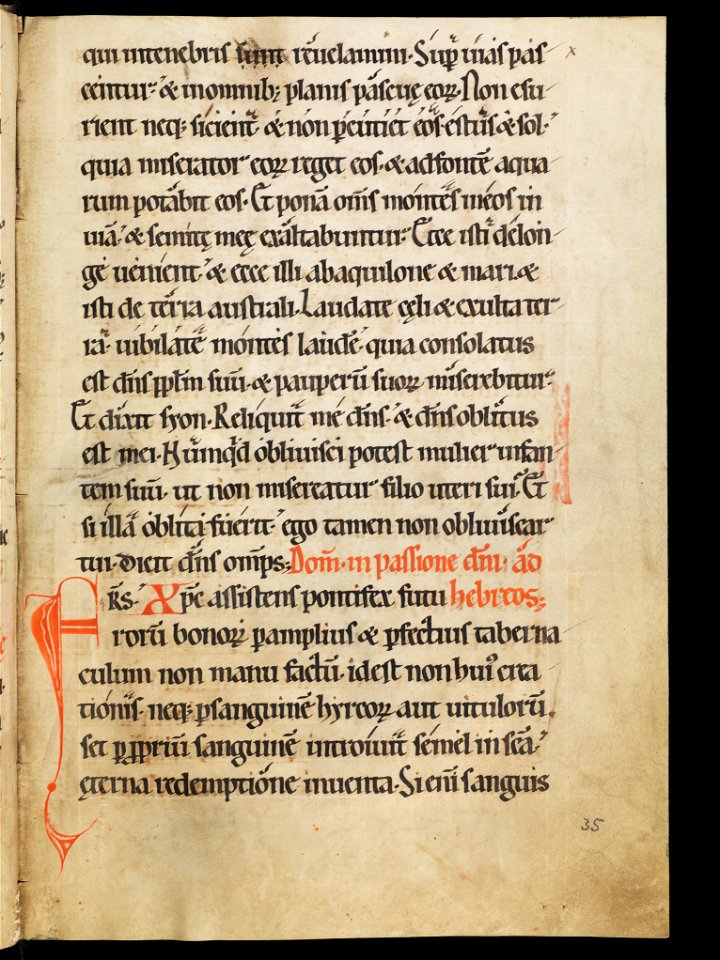 qui intenebris sunt revelamini. Sup̄ uias pas x
centur. & inomnib; planis pascuę eoꝝ. Non esu
rient neq; sicient. & non p̄cutiet eos estus & sol.
quia miserator eoꝝ reget eos. & adfontē aqua
rum potabit eos. Et ponā om̄s montes meos in
uiā. & semitę meę exaltabuntur. Ecce isti delon
ge uenient. & ecce illi abaquilone & mari. &
isti de terra australi. Laudate cęli & exulta ter
ra. iubilate montes laudē. quia consolatus
est dn̄s ppl̄m suū. & pauperū suoꝝ miserebitur.
Et dixit syon. Reliquit me dn̄s. & dn̄s oblitus
est mei. Numqͥd oblivisci potest mulier infan
tem suū. ut non misereatur filio uteri sui. Et
si illa oblita fuerit. ego tamen non obliuiscar
tui. dicit dn̄s om̄ps; Dom̄. in passione dn̄i. ad
F R̄S. Xp̄c assistens pontifex futu hebreos;
rorū bonoꝝ. ꝑamplius & ꝑfectius taberna
culum non manu factū. idest non huiꝰ crea
tionis. neq; ꝑsanguinē hyrcoꝝ aut uituloꝝū.
set ꝑ ꝓpriū sanguinē introiuit semel in sc̄a.
ęterna redemptione inuenta. Si enī sanguis
35